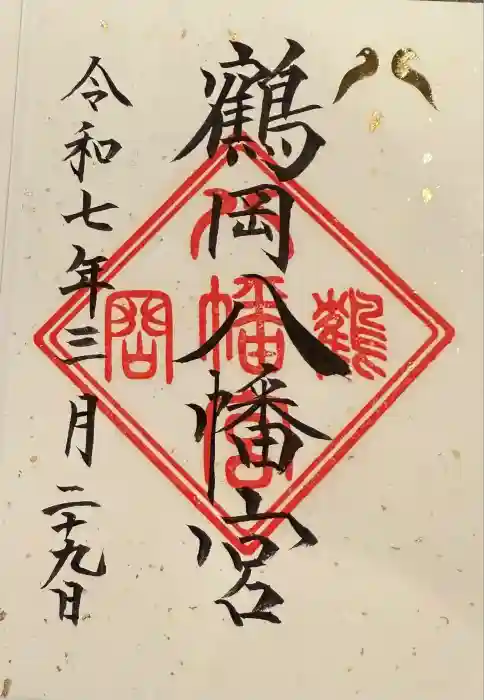 鶴岡八幡宮
令和七年三月二十九日
鶴
岡
八
幡
宮